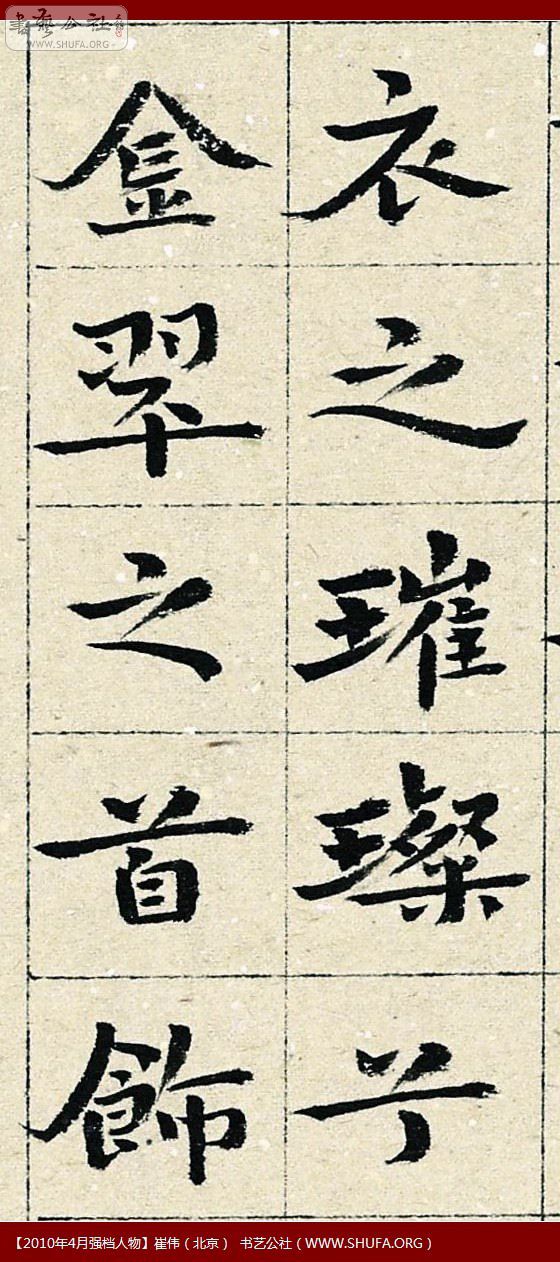 书艺公社
WWW.SHUFA.ORG
衣之璀璨兮
金翠之首飾
【2010年4月强档人物】崔伟（北京） 书艺公社（WWW.SHUFA.ORG）